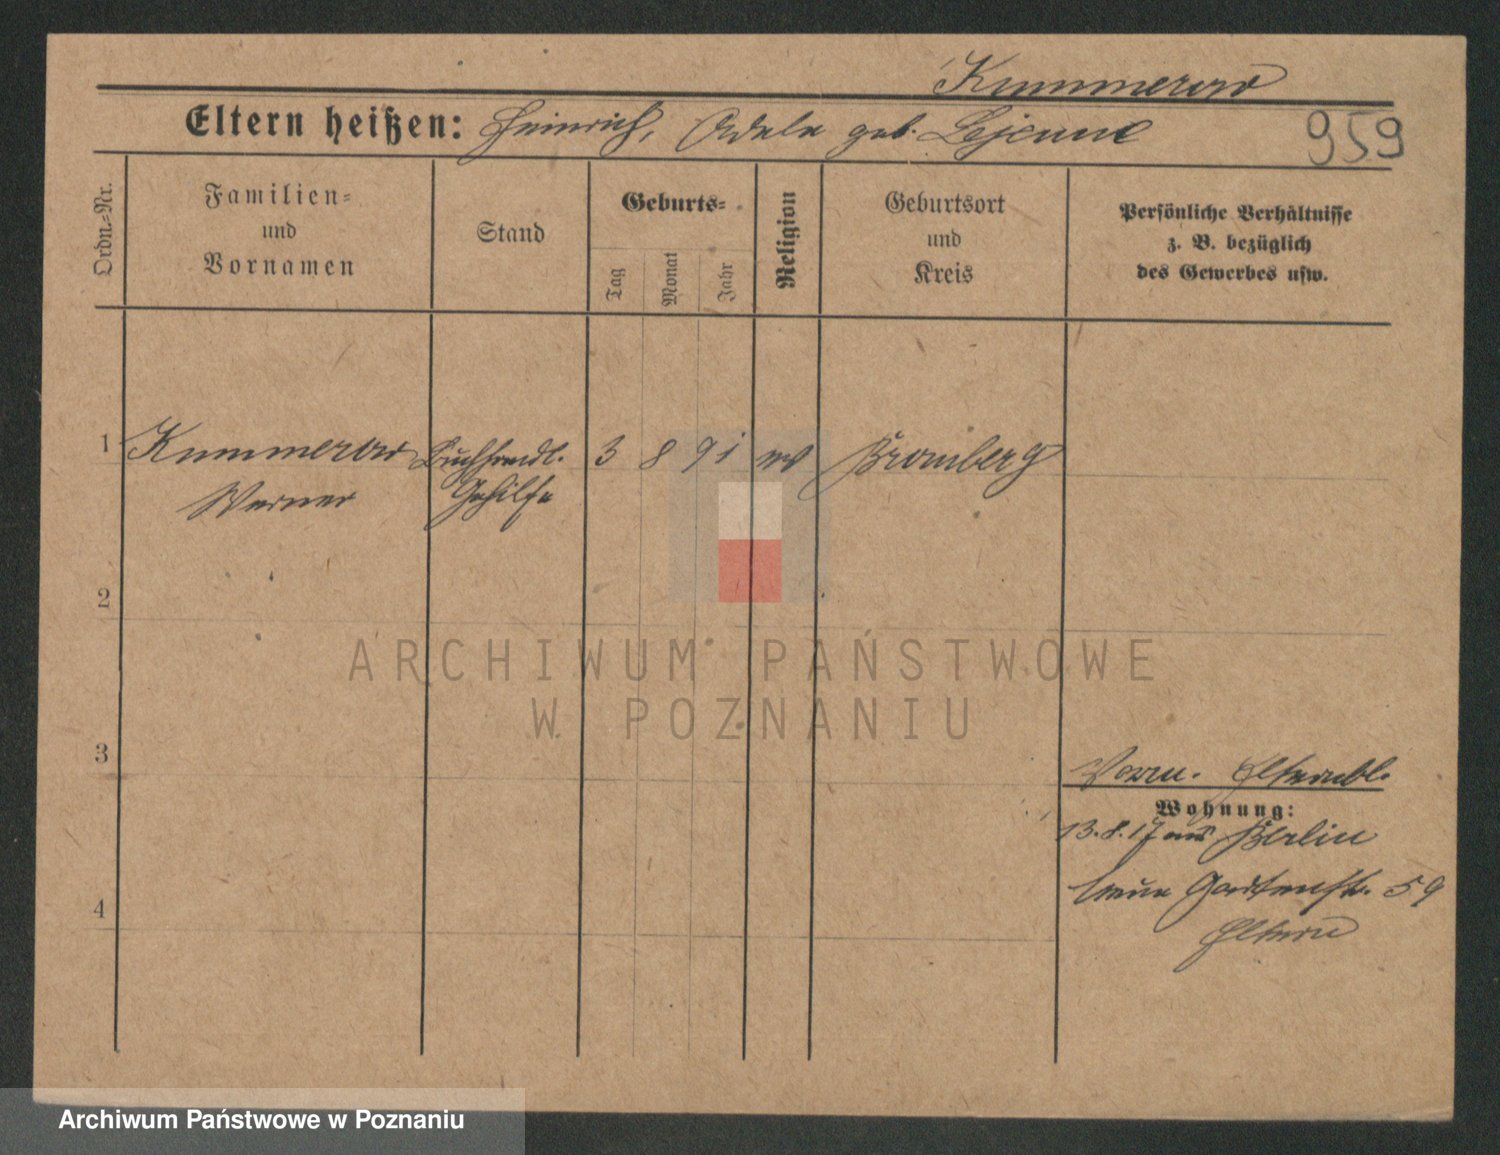 Kummerow
Eltern heißen: Heinrich, Adele geb. Lejeune
959
Ordn.-Nr.
Familien-
und
Vornamen
Stand
Geburts-
Tag
Monat
Jahr
Religion
Geburtsort
und
Kreis
Persönliche Verhältnisse
z. B. bezüglich
des Gewerbes usw.
1 Kummerow Buchhandl. 3 8 91 ev Bromberg
Werner Gehilfe
2
ARCHIWUM PAŃSTWOWE
W POZNANIU
3
Elternbl.
Wohnung:
13.8.17 aus Berlin
neue Gartenstr. 59
4
Eltern
Archiwum Państwowe w Poznaniu